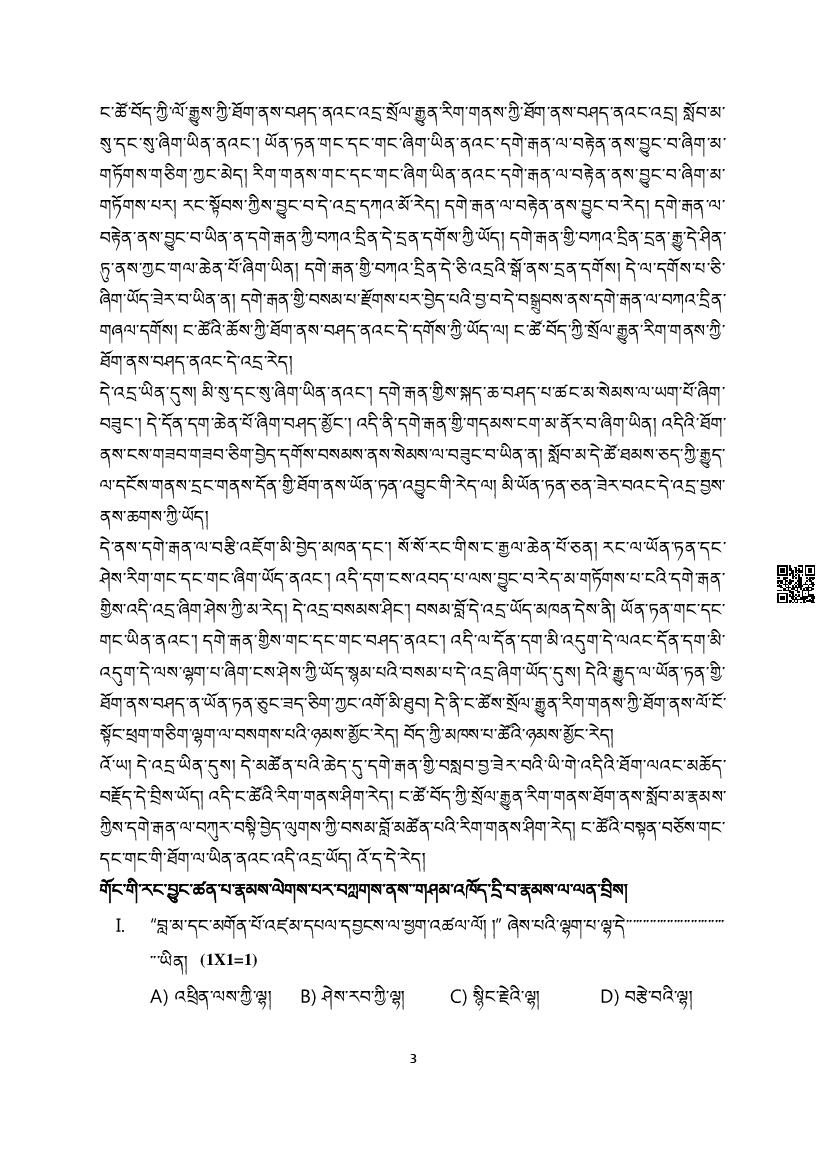 ང་ཚོ་བོད་ཀྱི་ལོ་རྒྱུས་ཀྱི་ཐོག་ནས་བཤད་ནའང་འདྲ་སྲོལ་རྒྱུན་རིག་གནས་ཀྱི་ཐོག་ནས་བཤད་ནའང་འདྲ། སློབ་མ་
སུ་དང་སུ་ཞིག་ཡིན་ནའང་། ཡོན་ཏན་གང་དང་གང་ཞིག་ཡིན་ནའང་དགེ་རྒན་ལ་བརྟེན་ནས་བྱུང་བ་ཞིག་མ་
གཏོགས་གཅིག་ཀྱང་མེད། རིག་གནས་གང་དང་གང་ཞིག་ཡིན་ནའང་དགེ་རྒན་ལ་བརྟེན་ནས་བྱུང་བ་ཞིག་མ་
གཏོགས་པར། རང་སྟོབས་ཀྱིས་བྱུང་བ་དེ་འདྲ་དཀའ་མོ་རེད། དགེ་རྒན་ལ་བརྟེན་ནས་བྱུང་བ་རེད། དགེ་རྒན་ལ་
བརྟེན་ནས་བྱུང་བ་ཡིན་ན་དགེ་རྒན་ཀྱི་བཀའ་དྲིན་དེ་དྲན་དགོས་ཀྱི་ཡོད། དགེ་རྒན་གྱི་བཀའ་དྲིན་དྲན་རྒྱུ་དེ་ཤིན་
ཏུ་ནས་ཀྱང་གལ་ཆེན་པོ་ཞིག་ཡིན། དགེ་རྒན་གྱི་བཀའ་དྲིན་དེ་ཅི་འདྲའི་སྒོ་ནས་དྲན་དགོས། དེ་ལ་དགོས་པ་ཅི་
ཞིག་ཡོད་ཟེར་བ་ཡིན་ན། དགེ་རྒན་གྱི་བསམ་པ་རྫོགས་པར་བྱེད་པའི་བྱ་བ་དེ་བསྒྲུབས་ནས་དགེ་རྒན་ལ་བཀའ་དྲིན་
གཞལ་དགོས། ང་ཚོའི་ཆོས་ཀྱི་ཐོག་ནས་བཤད་ནའང་དེ་དགོས་ཀྱི་ཡོད་ལ། ང་ཚོ་བོད་ཀྱི་སྲོལ་རྒྱུན་རིག་གནས་ཀྱི་
ཐོག་ནས་བཤད་ནའང་དེ་འདྲ་རེད།
དེ་འདྲ་ཡིན་དུས། མི་སུ་དང་སུ་ཞིག་ཡིན་ནའང་། དགེ་རྒན་གྱིས་སྐད་ཆ་བཤད་པ་ཚང་མ་སེམས་ལ་ཡག་པོ་ཞིག་
བཟུང་། དེ་དོན་དག་ཆེན་པོ་ཞིག་བཤད་མྱོང་། འདི་ནི་དགེ་རྒན་གྱི་གདམས་ངག་མ་ནོར་བ་ཞིག་ཡིན། འདིའི་ཐོག་
ནས་ངས་གཟབ་གཟབ་ཅིག་བྱེད་དགོས་བསམས་ནས་སེམས་ལ་བཟུང་བ་ཡིན་ན། སློབ་མ་དེ་ཚོ་ཐམས་ཅད་ཀྱི་རྒྱུད་
ལ་དངོས་གནས་དྲང་གནས་དོན་གྱི་ཐོག་ནས་ཡོན་ཏན་འབྱུང་གི་རེད་ལ། མི་ཡོན་ཏན་ཅན་ཟེར་བའང་དེ་འདྲ་བྱས་
ནས་ཆགས་ཀྱི་ཡོད།
དེ་ནས་དགེ་རྒན་ལ་བརྩི་འཇོག་མི་བྱེད་མཁན་དང་། སོ་སོ་རང་གིས་ང་རྒྱལ་ཆེན་པོ་ཅན། རང་ལ་ཡོན་ཏན་དང་
ཤེས་རིག་གང་དང་གང་ཞིག་ཡོད་ནའང་། འདི་དག་ངས་འབད་པ་ལས་བྱུང་བ་རེད་མ་གཏོགས་པ་ངའི་དགེ་རྒན་
གྱིས་འདི་འདྲ་ཞིག་ཤེས་ཀྱི་མ་རེད། དེ་འདྲ་བསམས་ཤིང་། བསམ་བློ་དེ་འདྲ་ཡོད་མཁན་དེས་ནི། ཡོན་ཏན་གང་དང་
གང་ཡིན་ནའང་། དགེ་རྒན་གྱིས་གང་དང་གང་བཤད་ནའང་། འདི་ལ་དོན་དག་མི་འདུག་དེ་ལའང་དོན་དག་མི་
འདུག་དེ་ལས་ལྷག་པ་ཞིག་ངས་ཤེས་ཀྱི་ཡོད་སྙམ་པའི་བསམ་པ་དེ་འདྲ་ཞིག་ཡོད་དུས། དེའི་རྒྱུད་ལ་ཡོན་ཏན་གྱི་
ཐོག་ནས་བཤད་ན་ཡོན་ཏན་ཅུང་ཟད་ཅིག་ཀྱང་འགོ་མི་ཐུབ། དེ་ནི་ང་ཚོས་སྲོལ་རྒྱུན་རིག་གནས་ཀྱི་ཐོག་ནས་ལོ་ངོ་
སྟོང་ཕྲག་གཅིག་ལྷག་ལ་བསགས་པའི་ཉམས་མྱོང་རེད། བོད་ཀྱི་མཁས་པ་ཚོའི་ཉམས་མྱོང་རེད།
འོ་ཡ། དེ་འདྲ་ཡིན་དུས། དེ་མཚོན་པའི་ཆེད་དུ་དགེ་རྒན་གྱི་བསླབ་བྱ་ཟེར་བའི་ཡི་གེ་འདིའི་ཐོག་ལའང་མཆོད་
བརྗོད་དེ་བྲིས་ཡོད། འདི་ང་ཚོའི་རིག་གནས་ཤིག་རེད། ང་ཚོ་བོད་ཀྱི་སྲོལ་རྒྱུན་རིག་གནས་ཐོག་ནས་སློབ་མ་རྣམས་
ཀྱིས་དགེ་རྒན་ལ་བཀུར་བསྟི་བྱེད་ལུགས་ཀྱི་བསམ་བློ་མཚོན་པའི་རིག་གནས་ཤིག་རེད། ང་ཚོའི་བསྟན་བཅོས་གང་
དང་གང་གི་ཐོག་ལ་ཡིན་ནའང་འདི་འདྲ་ཡོད། འོ་ད་དེ་རེད།
གོང་གི་རང་བྱུང་ཚན་པ་རྣམས་ལེགས་པར་བཀླགས་ནས་གཤམ་འཁོད་དྲི་བ་རྣམས་ལ་ལན་བྲིས།
I. “བླ་མ་དང་མགོན་པོ་འཇམ་དཔལ་དབྱངས་ལ་ཕྱག་འཚལ་ལོ། །” ཞེས་པའི་ལྷག་པ་ལྷ་དེ་........................
...ཡིན། (1X1=1)
A) འཕྲིན་ལས་ཀྱི་ལྷ། B) ཤེས་རབ་ཀྱི་ལྷ། C) སྙིང་རྗེའི་ལྷ། D) བརྩེ་བའི་ལྷ།
3